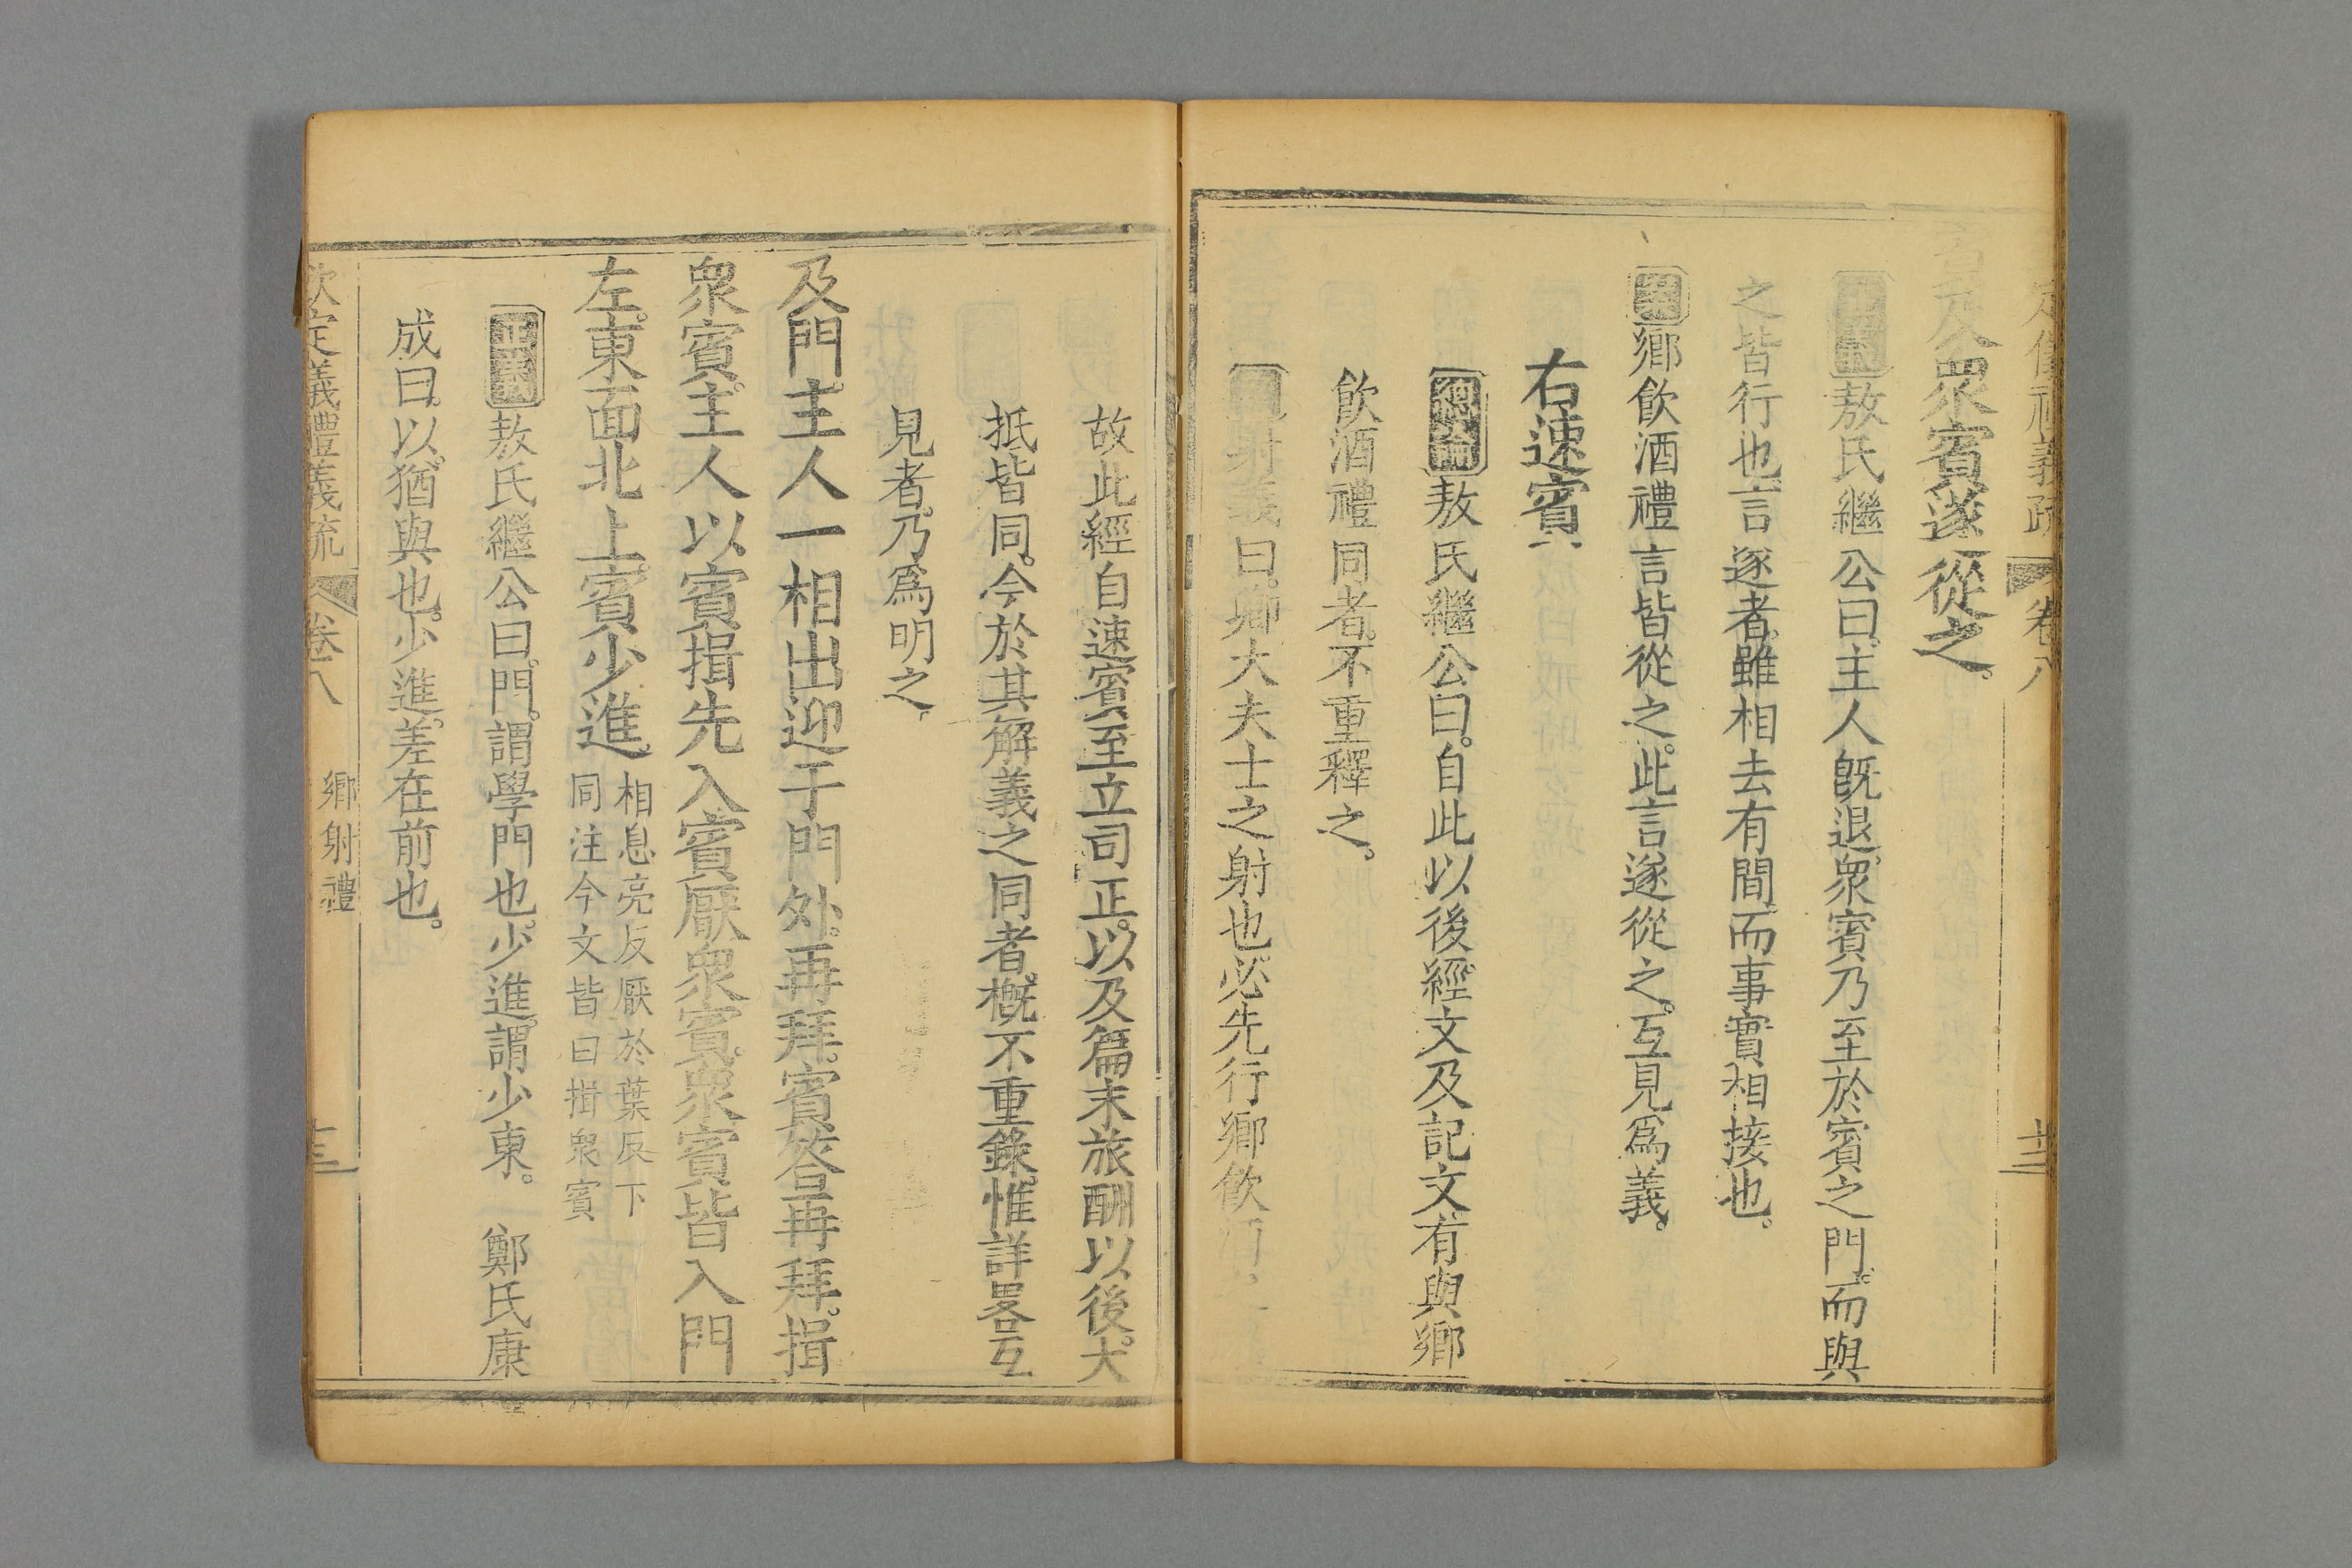 定儀禮義疏 卷八 十二
及衆賓遂從之。
正義敖氏繼公曰。主人旣退。衆賓乃至於賓之門。而與
之皆行也。言逐者。雖相去有間。而事實相接也。
案鄉飮酒禮言皆從之。此言遂從之。互見爲義。
右速賓
總論敖氏繼公曰。自此以後經文及記文。有與鄉
飮酒禮同者。不重釋之。
射義曰。鄉大夫士之射也。必先行鄉飮酒
故此經自速賓至立司正。以及篇末旅酬以後。大
抵皆同。今於其解義之同者。槪不重錄。惟詳畧互
見者。乃爲明之。
及門。主人一相出迎于門外。再拜。賓答再拜。揖
衆賓。主人以賓揖先入。賓厭衆賓。衆賓皆入門
左。東面北上。賓少進。
相息亮反厭於葉反下
同注今文皆曰揖衆賓
正義敖氏繼公曰。門。謂學門也。少進。謂少東。 鄭氏康
成曰。以。猶與也。少進。差在前也。
欽定義禮義疏 卷八 鄉射禮 十三